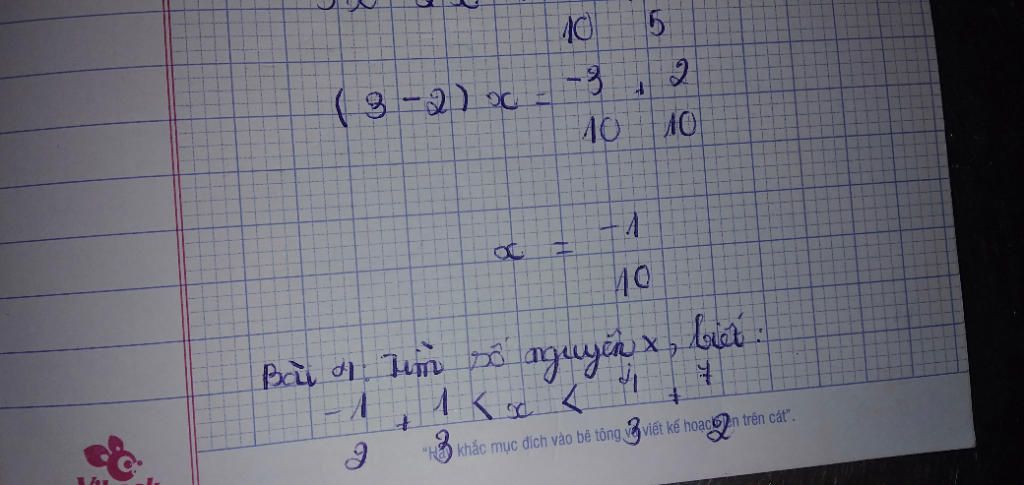 10 5
(3 - 2) x = -3 + 2
10 10
x = -1
10
Bài 4: Tìm số nguyên x, biết:
-1 + 1 < x < 4 + 7
2 3 3 2
khắc mục đích vào bê tông và viết kế hoạch trên cát".